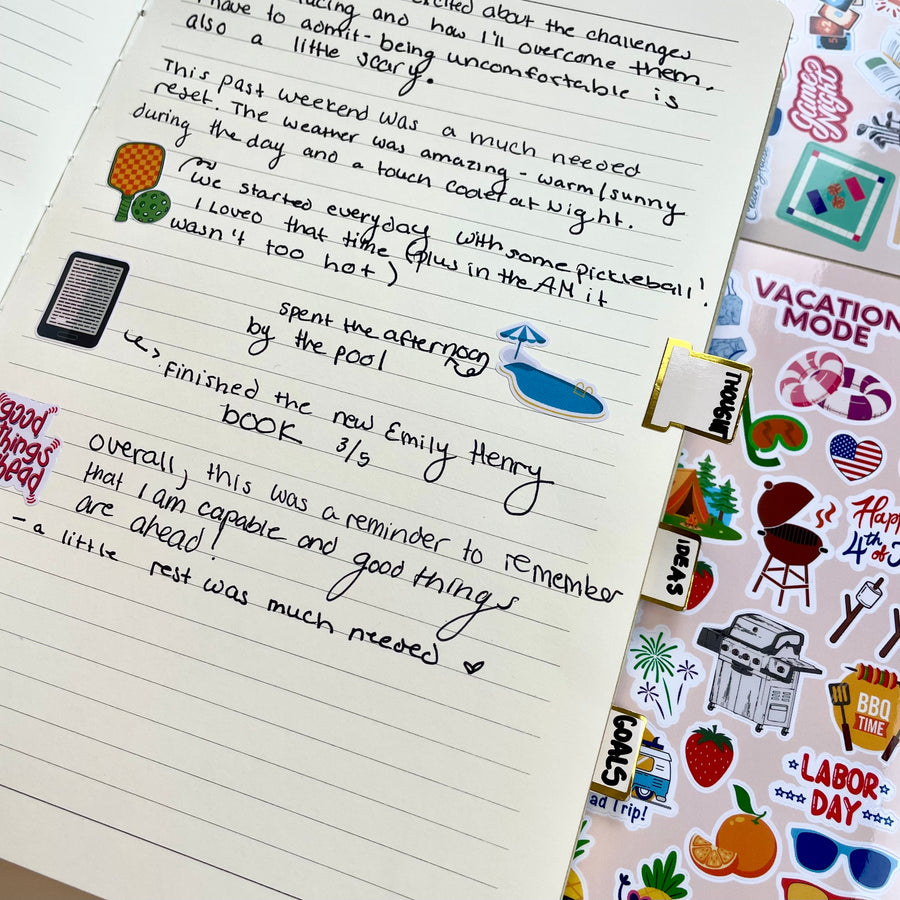 excited about the challenges
and how I'll overcome them.
I have to admit - being uncomfortable is
also a little scary.
This past weekend was a much needed
reset. The weather was amazing - warm/sunny
during the day and a touch cooler at night.
we started everyday with some pickleball!
I Loved that time (plus in the AM it
wasn't too hot)
spent the afternoon
by the pool
Finished the new Emily Henry
book 3/5
Overall, this was a reminder to remember
that I am capable and good things
are ahead!
- a little rest was much needed
good
things
ahead
THOUGHT
IDEAS
GOALS
Game
Night
VACATION
MODE
Happy
4th
of
BBQ
TIME
LABOR
DAY
ad Trip!